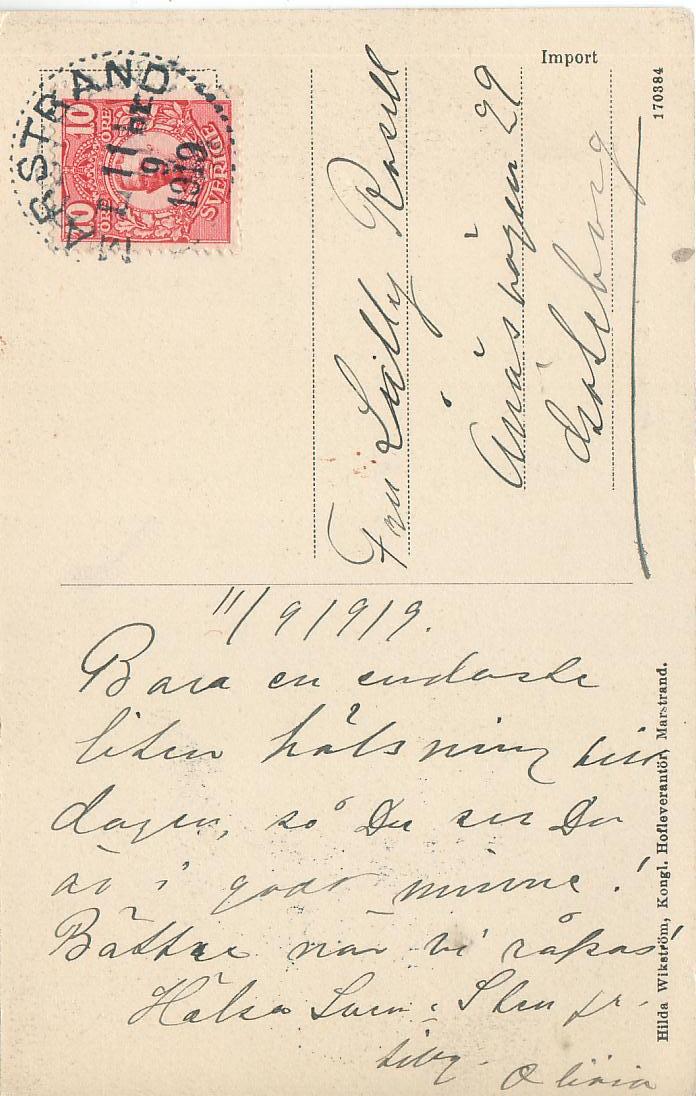 MARSTRAND
11
9
1919
10 10
ÖRE ÖRE
SVERIGE
Import
170384
Fru Lilly Rosell
Anäsvägen 29
Göteborg
11/9 1919.
Bara en endaste
liten hälsning till
dagen, så Du ser Du
är i godt minne!
Bättre när vi råkas!
Hälsa Sven Sten fr.
Olivia
Hilda Wikström, Kongl. Hofleverantör, Marstrand.